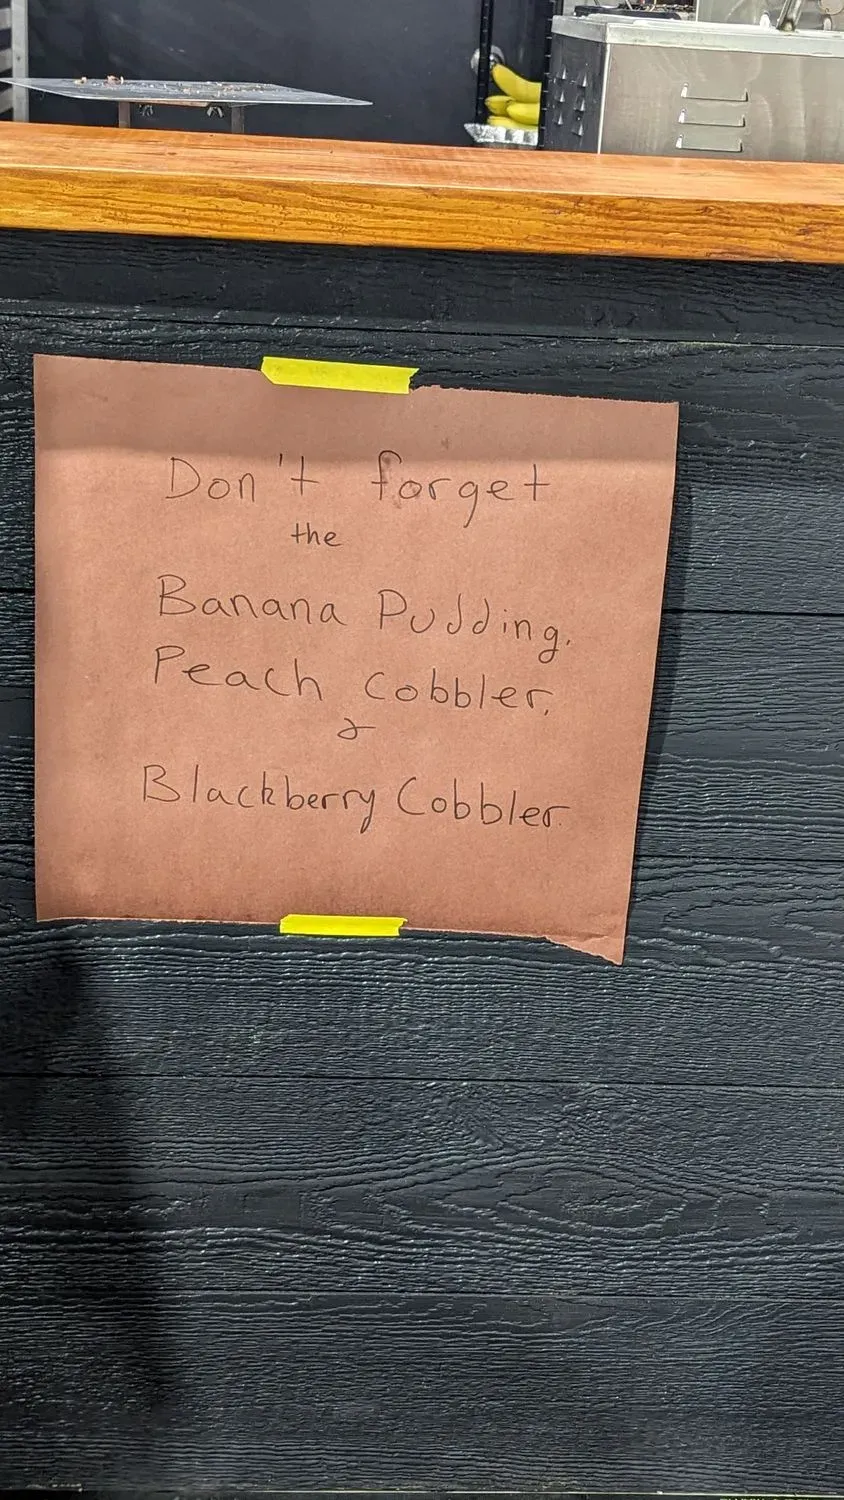 Don't forget
the
Banana Pudding,
Peach Cobbler,
&
Blackberry Cobbler.